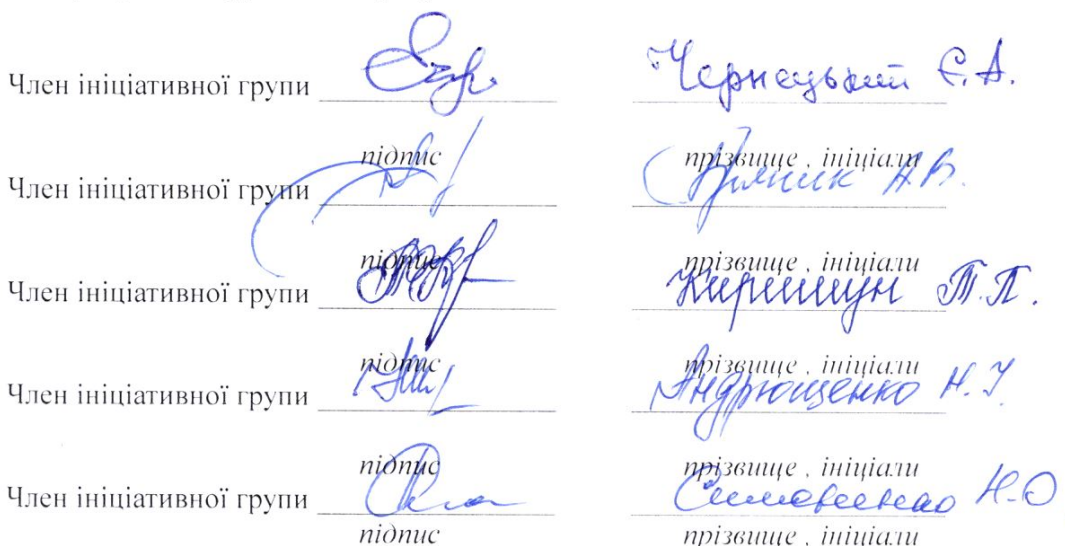 Член ініціативної групи Чернецький Є.А.
підпис прізвище , ініціали
Член ініціативної групи А.В.
підпис прізвище , ініціали
Член ініціативної групи Киришун Т.П.
підпис прізвище , ініціали
Член ініціативної групи Андрющенко Н.І.
підпис прізвище , ініціали
Член ініціативної групи Н.О
підпис прізвище , ініціали